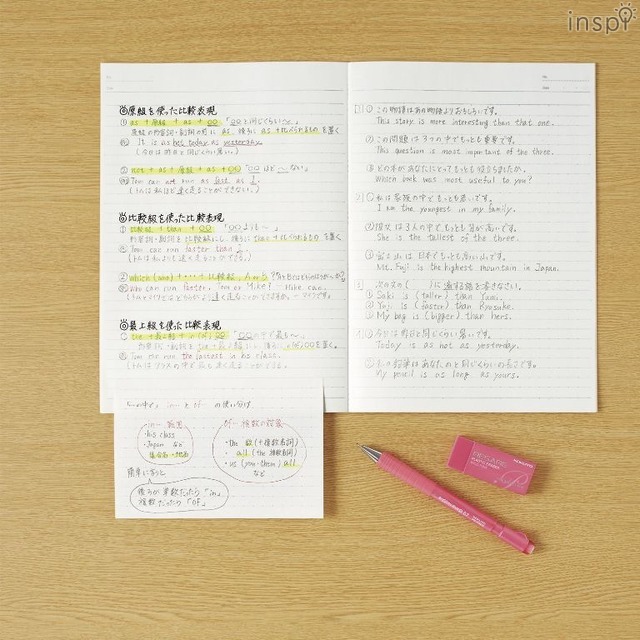 inspi
原級を使った比較表現
① as + 原級 + as + ○○ 「○○と同じくらい〜」
原級の形容詞・副詞の前に as、後ろに as + 比べられるもの を置く
例 It is as hot today as yesterday.
(今日は昨日と同じくらい暑い。)
② not + as + 原級 + as + ○○ 「○○ほど〜ない」
例 Tom can not run as fast as I.
(トムは私ほど速く走ることができない。)
比較級を使った比較表現
① 比較級 + than + ○○ 「○○より〜」
形容詞・副詞を比較級にし、後ろに than + 比べられるもの を置く
例 Tom can run faster than I.
(トムは私よりも速く走ることができる。)
② which (who) + ・・・ + 比較級, A or B
例 Who can run faster, Tom or Mike? - Mike can.
最上級を使った比較表現
① the + 最上級 + in (of) ○○ 「○○の中で最も〜」
例 Tom can run the fastest in his class.
(トムはクラスの中で最も速く走ることができる。)
「〜の中で」 in〜 と of〜 の使い分け
in〜 範囲
・his class
・Japan など
集合名・地名
of〜 複数の言葉
・the 数 (+ 複数名詞)
・all (the 複数名詞)
・us (you・them) all
など
簡単に言うと
後ろが単数だったら「in」
複数だったら「of」
[1] ① この物語はあの物語よりおもしろいです。
This story is more interesting than that one.
② この問題は3つの中でもっとも重要です。
This question is most important of the three.
③ どの本があなたにとってもっとも役立ちましたか。
Which book was most useful to you?
[2] ① 私は家族の中でもっとも若いです。
I am the youngest in my family.
② 彼女は3人の中でもっとも背が高いです。
She is the tallest of the three.
③ 富士山は日本でもっとも高い山です。
Mt. Fuji is the highest mountain in Japan.
[3] 次の文の( )に適する語を書きなさい。
① Saki is (taller) than Yumi.
② Yuji is (faster) than Ryosuke.
③ My bag is (bigger) than hers.
[4] ① 今日は昨日と同じくらい暑いです。
Today is as hot as yesterday.
② 私の鉛筆はあなたのと同じくらいの長さです。
My pencil is as long as yours.